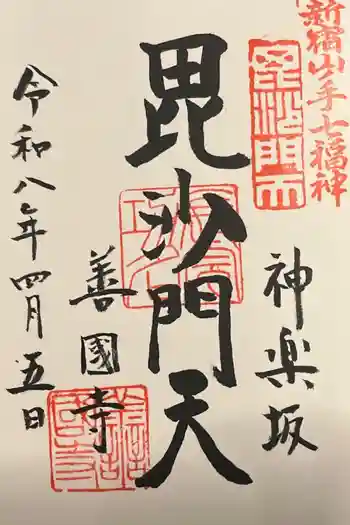 新宿山ノ手七福神
神楽坂
毘沙門天
善國寺
令和八年四月五日